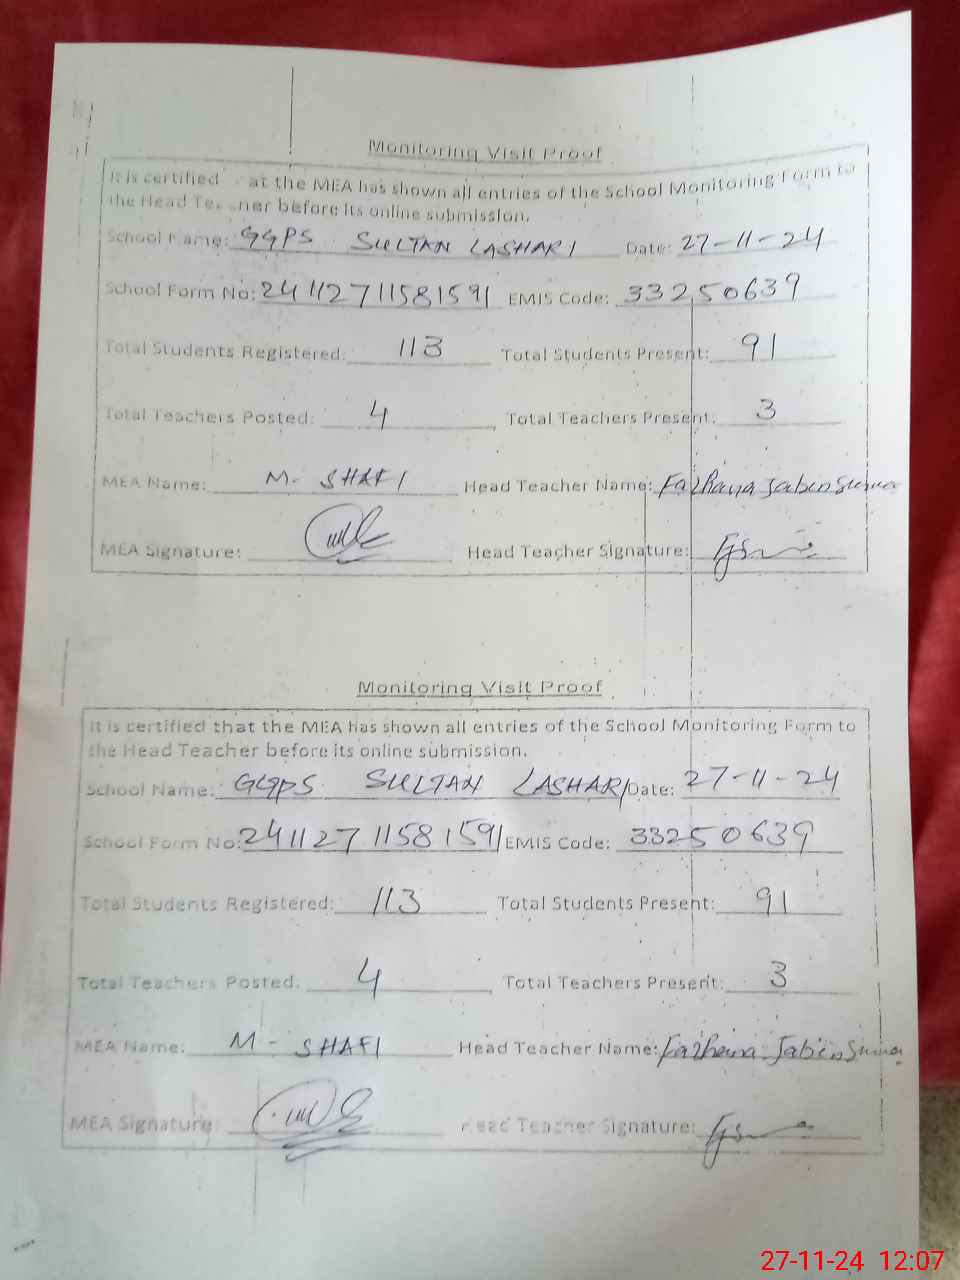 Monitoring Visit Proof
It is certified at the MEA has shown all entries of the School Monitoring Form to
the Head Te ner before its online submission.
School Name: GGPS SULTAN LASHARI Date: 27-11-24
School Form No: 24112711581591 EMIS Code: 33250639
Total Students Registered: 113 Total Students Present: 91
Total Teachers Posted: 4 Total Teachers Present: 3
MEA Name: M. SHAFI Head Teacher Name:
MEA Signature: Head Teacher Signature:
Monitoring Visit Proof
It is certified that the MEA has shown all entries of the School Monitoring Form to
the Head Teacher before its online submission.
School Name: GGPS SULTAN LASHARI Date: 27-11-24
School Form No: 24112711581591 EMIS Code: 33250639
Total Students Registered: 113 Total Students Present: 91
Total Teachers Posted: 4 Total Teachers Present: 3
MEA Name: M - SHAFI Head Teacher Name:
MEA Signature: Head Teacher Signature:
27-11-24 12:07